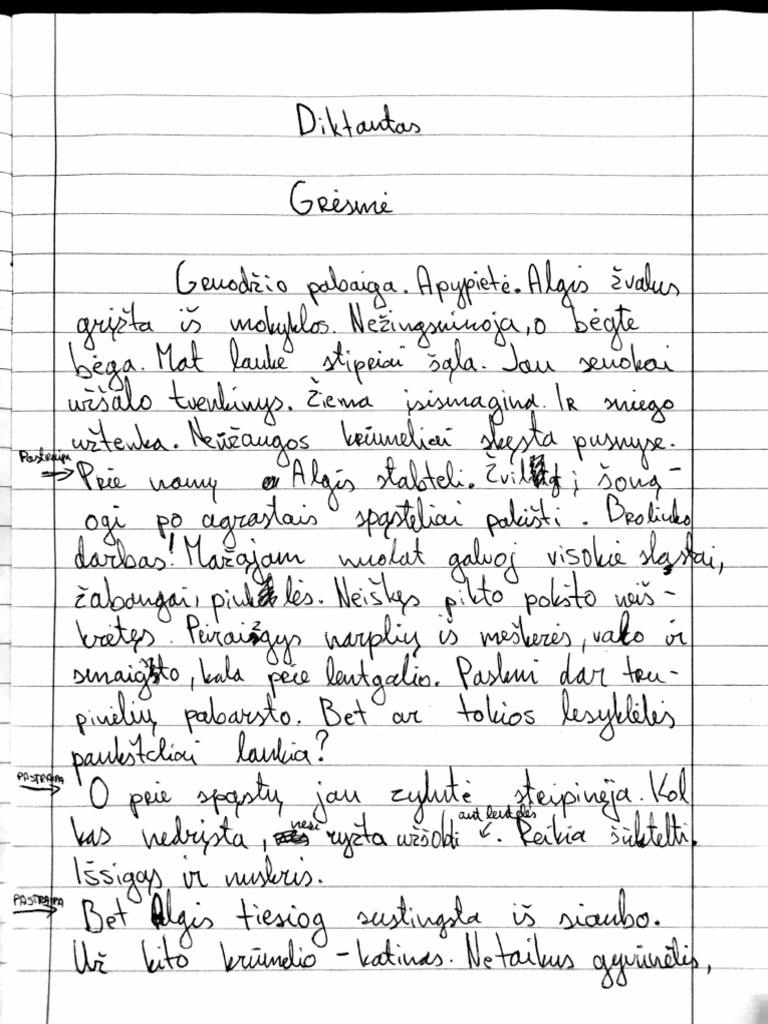 Diktantas
Grėsmė
Gruodžio pabaiga. Apypietė. Algis žvalus
grįžta iš mokyklos. Nežingsniuoja, o bėgte
bėga. Mat lauke stipriai šąla. Jau senokai
užšalo tvenkinys. Žiema įsismagina. Ir sniego
užtenka. Neūžaugos krūmeliai skęsta pusnyse.
Pastraipa
Prie namų Algis stabteli. į šoną –
ogi po agrastais spąsteliai pakišti. Broliuko
darbas! Mažajam nuolat galvoj visokie sląstai,
žabangai, pinklės. Neiškęs pikto pokšto neiš-
krėtęs. Peiraižgys narplių iš meškerės, valo ir
smaigsto, kala prie lentgalio. Paskui dar tru-
pinėlių pabarsto. Bet ar tokios lesyklėlės
paukščiai laukia?
PASTRAIPA
O prie spąstų jau zylutė straipinėja. Kol
kas nedrįsta, nesi ryžta užšokti ant lentelės. Reikia šūktelti.
Išsigąs ir nuskris.
PASTRAIPA
Bet Algis tiesiog sustingsta iš siaubo.
Už kito krūmelio – katinas. Netaikus gyvūnėlis,